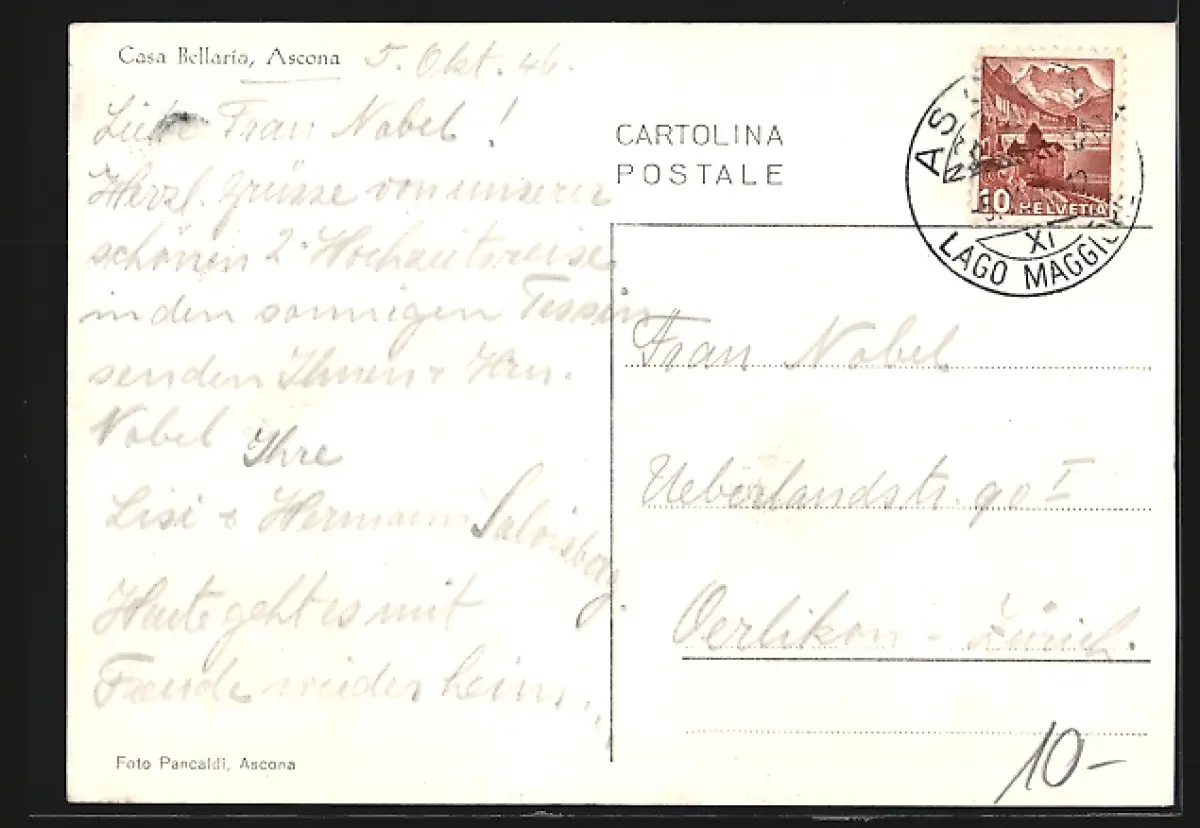 Casa Bellaria, Ascona 5. Okt. 46.
Liebe Frau Nobel!
Herzl. Grüsse von unserer
schönen 2. Hochzeitsreise
in den sonnigen Tessin
senden Ihnen + Hrn.
Nobel Ihre
Lisi + Hermann Salvisberg.
Heute geht es mit
Freude wieder heim.
Foto Pancaldi, Ascona
CARTOLINA
POSTALE
10 HELVETIA
AS
XI
LAGO MAGGIO
Frau Nobel
Ueberlandstr. 90 I
Oerlikon - Zürich.
10-